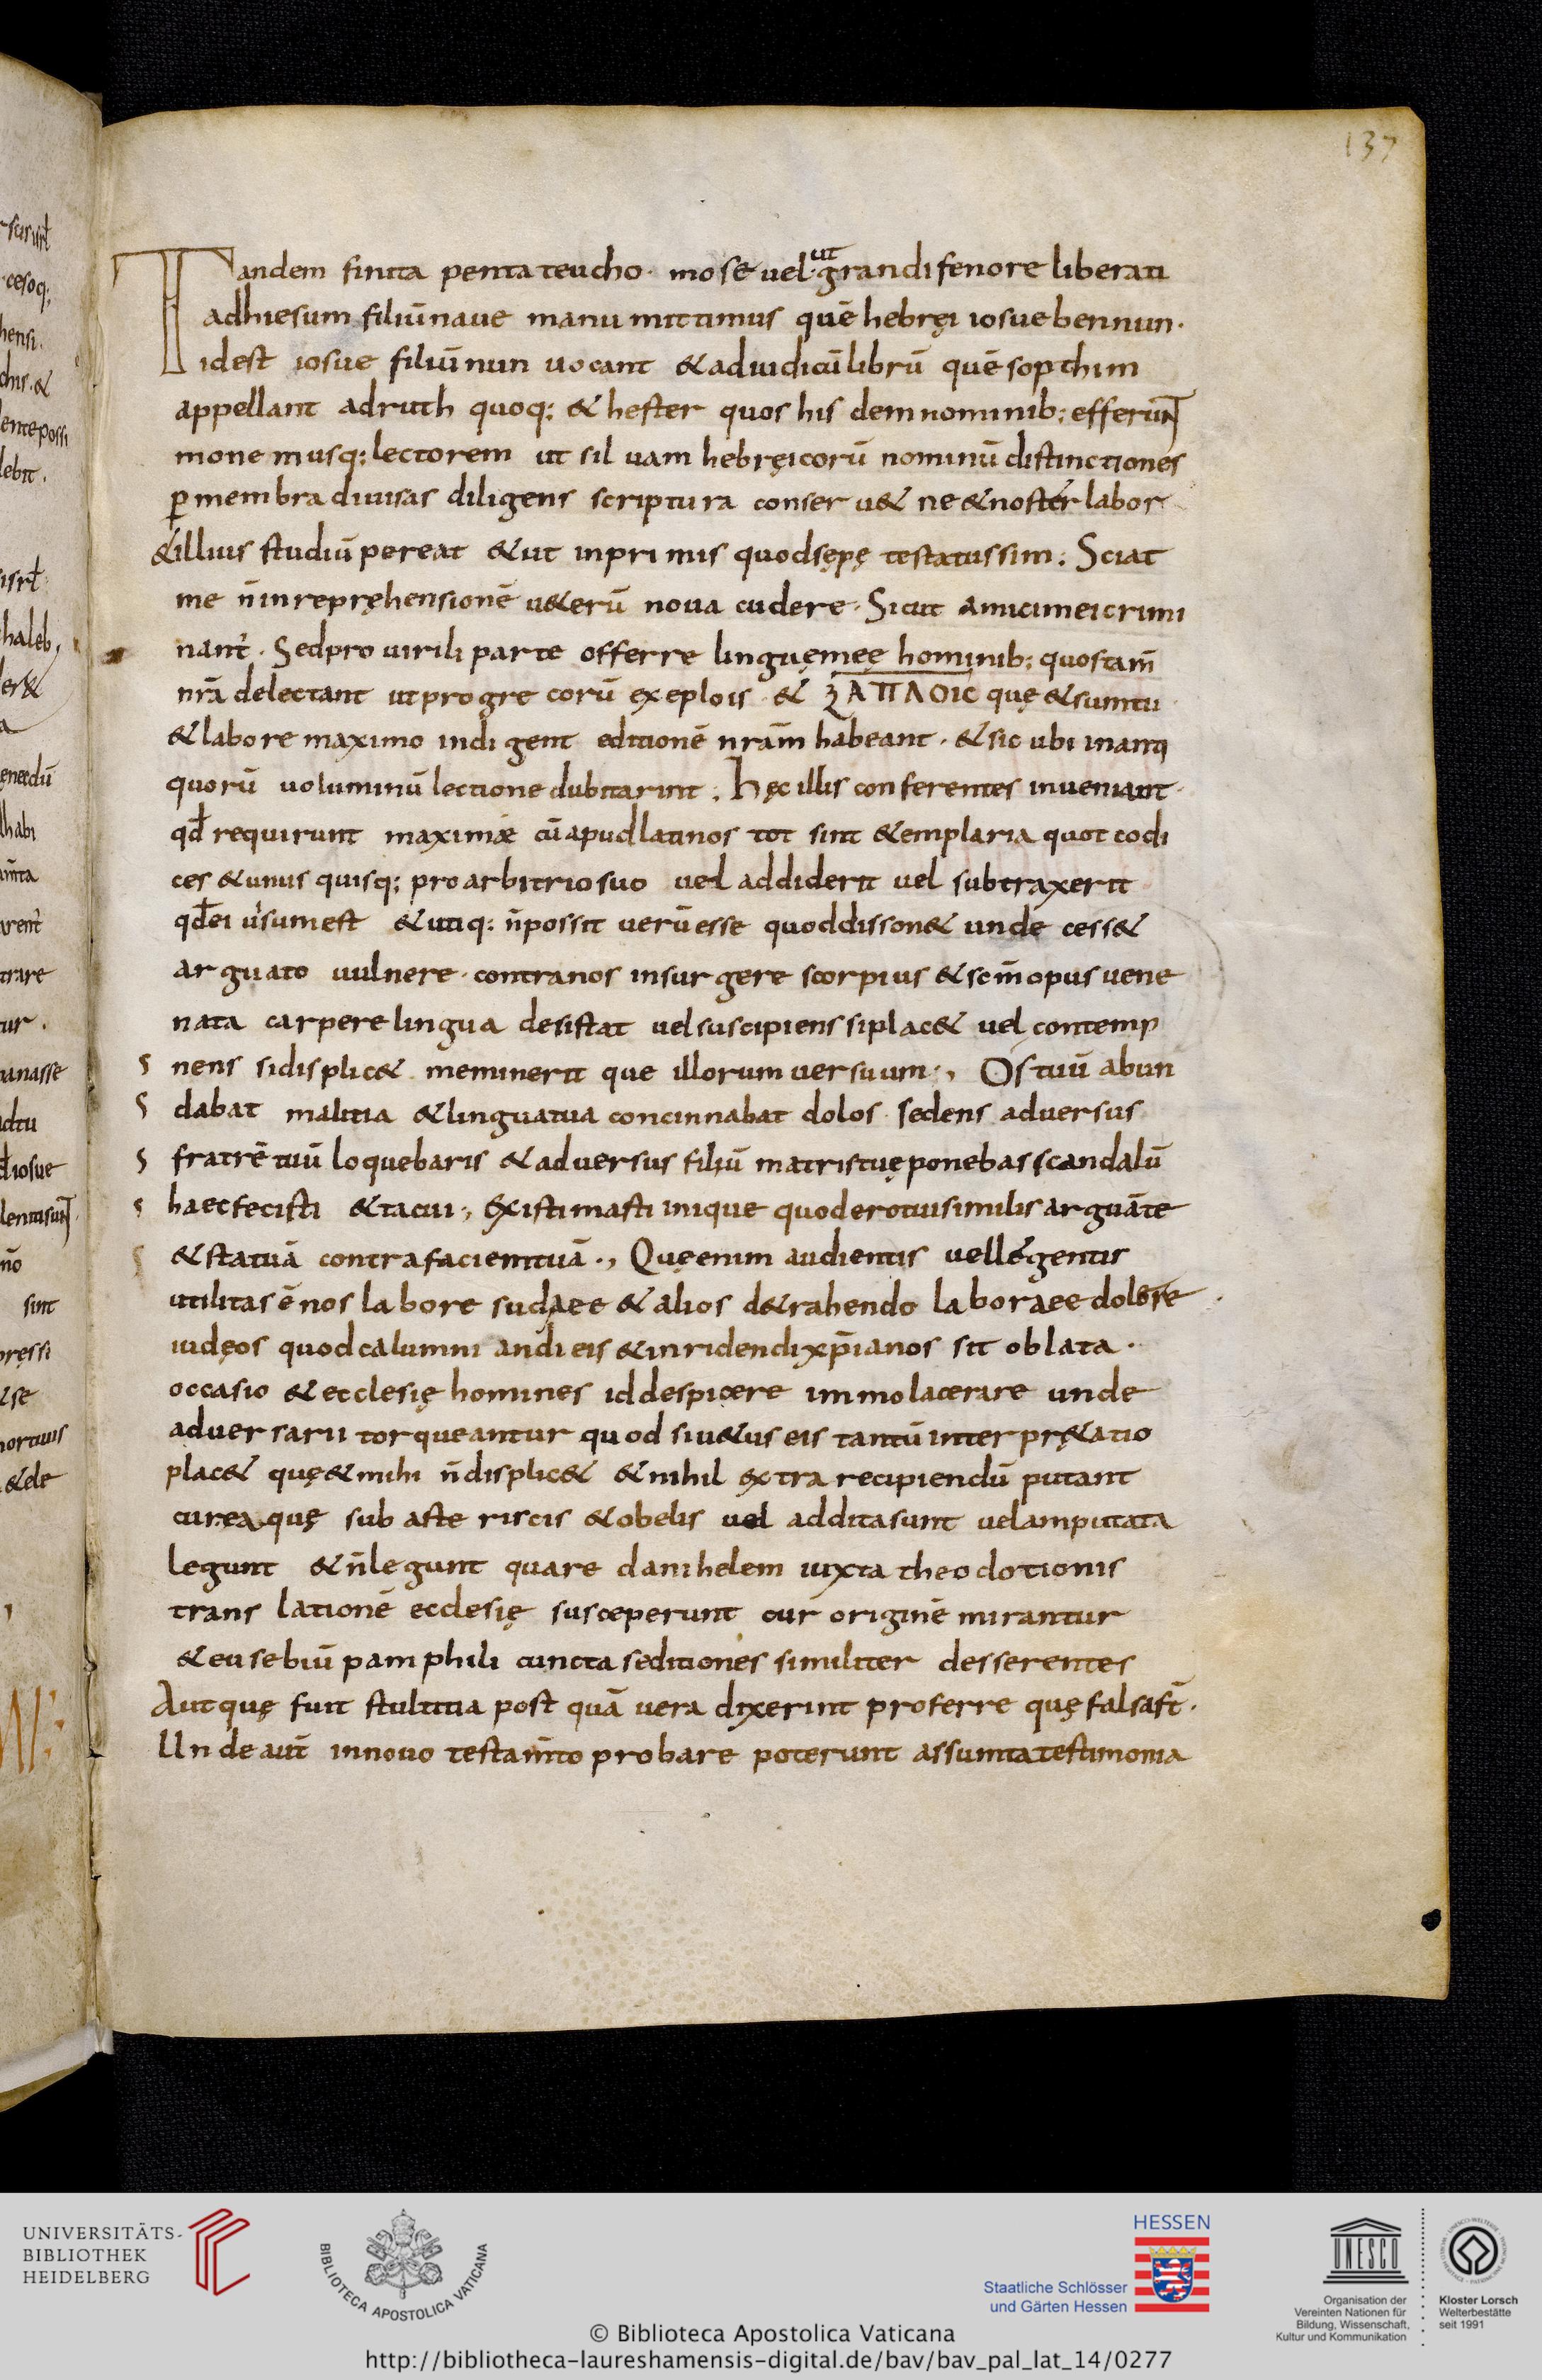 137
Tandem finita pentateucho· mose vel ut grandi fenore liberati
ad hiesum filiū nave manu mittimus quē hebręi iosue bennun·
id est iosue filiū nun vocant & ad iudicū librū quē sopthim
appellant ad ruth quoq; & hester quos hisdem nominib; efferunt
monemusq; lectorem ut silvam hebręicorū nominū distinctiones
ꝑ membra divisas diligens scriptura conserv& ne & noster labor
& illius studiū pereat & ut inprimis quod sępę testatus sim: Sciat
me n̄ in repręhensionē v&erū nova cudere· Sicut amici mei crimi
nant̄· Sed pro virili parte offerre linguę męę hominib; quos tam̄
nr̄a delectant ut pro grecorū exeplois & ȝΑΠΛΟΙC quę & sumtu
& labore maximo indigent editionē nrām habeant· & sic ubi in anti
quorū voluminū lectione dubitarint· hęc illis conferentes inveniant·
qđ requirunt maximæ cū apud latinos tot sint &emplaria quot codi
ces & unus quisq; pro arbitrio suo vel addiderit vel subtraxerit
qđ ei v̓sum est & utiq; n̄ possit verū esse quod disson& unde cess&
arguato vulnere· contra nos insurgere scorpius & scm̄ opus vene
nata carpere lingua desistat vel suscipiens si plac& vel contemp
nens si displic& meminerit que illorum versuum·, Os tuū abun
dabat malitia & lingua tua concinnabat dolos· sedens adversus
fratrē tuū loquebaris & adversus filiū matris tuę ponebas scandalū
haec fecisti & tacui·, Existimasti inique quod ero tui similis arguā te
& statuā contra faciem tuā·, Quę enim audientis vel legentis
utilitas ē nos labore sudaee & alios d&rahendo laboraee dolere
iudęos quod calumniandi eis & inridendi xp̄ianos sit oblata·
occasio & ecclesię homines id despicere immo lacerare unde
adversarii torqueantur quod si v&us eis tantū interpr&atio
plac& quę & mihi n̄ displic& & nihil extra recipiendū putant
cur ea quę sub asteriscis & obelis vel addita sunt vel amputata
legunt & n̄ legunt quare danihelem iuxta theodotionis
translationē ecclesię susceperunt cur originē mirantur
& eusebiū pamphili cunctas editiones similiter desserentes
Aut quę fuit stultitia post quā vera dixerint proferre quę falsa st̄·
Unde aut̄ in novo testam̄to probare poterunt assumta testimonia
UNIVERSITÄTS-
BIBLIOTHEK
HEIDELBERG
BIBLIOTECA APOSTOLICA VATICANA
HESSEN
Staatliche Schlösser
und Gärten Hessen
UNESCO
Organisation der
Vereinten Nationen für
Bildung, Wissenschaft,
Kultur und Kommunikation
Kloster Lorsch
Welterbestätte
seit 1991
© Biblioteca Apostolica Vaticana
http://bibliotheca-laureshamensis-digital.de/bav/bav_pal_lat_14/0277